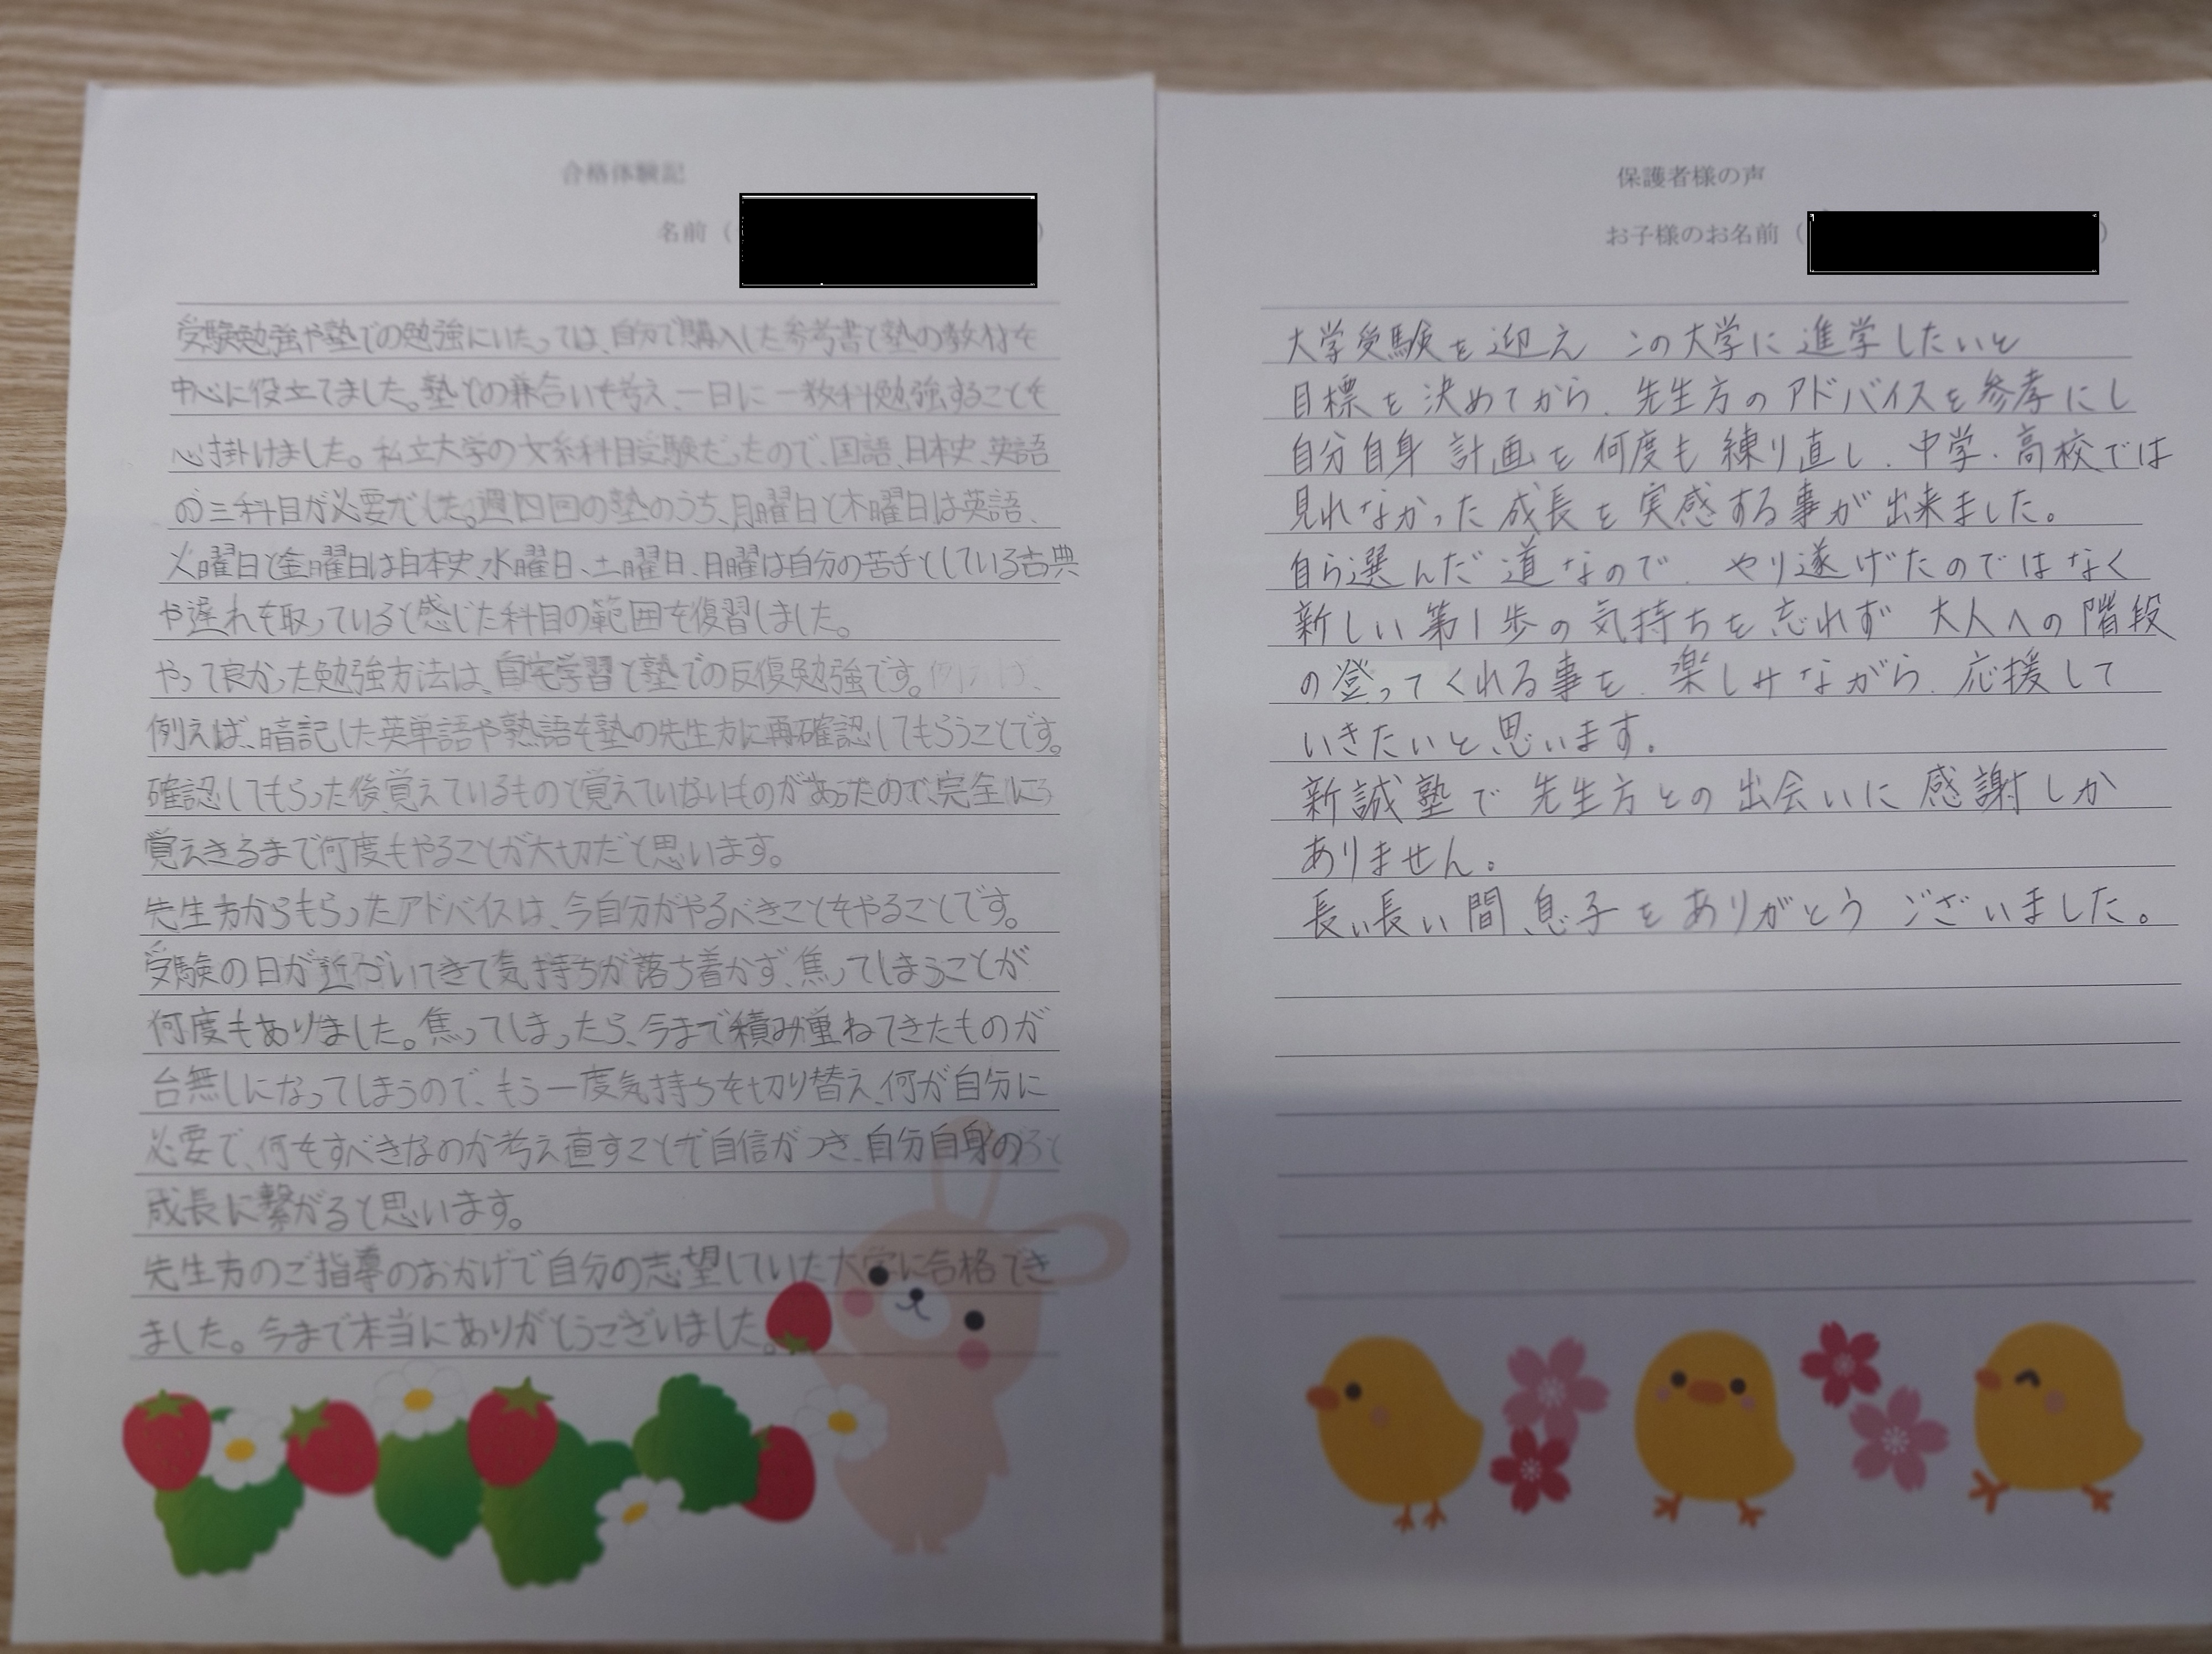 合格体験記
名前（　）
受験勉強や塾での勉強にいたっては、自分で購入した参考書と塾の教材を
中心に役立てました。塾との兼合いも考え、一日に一教科勉強することを
心掛けました。私立大学の文系科目受験だったので、国語、日本史、英語
の三科目が必要でした。週四回の塾のうち、月曜日と木曜日は英語、
火曜日と金曜日は日本史、水曜日、土曜日、日曜は自分の苦手としている古典
や遅れを取っていると感じた科目の範囲を復習しました。
やって良かった勉強方法は、自宅学習と塾での反復勉強です。
例えば、暗記した英単語や熟語を塾の先生方に再確認してもらうことです。
確認してもらった後、覚えているものと覚えていないものがあったので、完全に
覚えきるまで何度もやることが大切だと思います。
先生方からもらったアドバイスは、今自分がやるべきことをやることです。
受験の日が近づいてきて気持ちが落ち着かず、焦ってしまうことが
何度もありました。焦ってしまったら、今まで積み重ねてきたものが
台無しになってしまうので、もう一度気持ちを切り替え、何が自分に
必要で、何をすべきなのか考え直すことで自信がつき、自分自身の
成長に繋がると思います。
先生方のご指導のおかげで自分の志望していた大学に合格でき
ました。今まで本当にありがとうございました。
保護者様の声
お子様のお名前（　）
大学受験を迎え この大学に進学したいと
目標を決めてから、先生方のアドバイスを参考にし
自分自身 計画を何度も練り直し、中学・高校では
見れなかった成長を実感する事が出来ました。
自ら選んだ道なので、やり遂げたのではなく
新しい第1歩の気持ちを忘れず 大人への階段
の登ってくれる事を、楽しみながら、応援して
いきたいと思います。
新誠塾で先生方との出会いに感謝しか
ありません。
長い長い間、息子をありがとうございました。